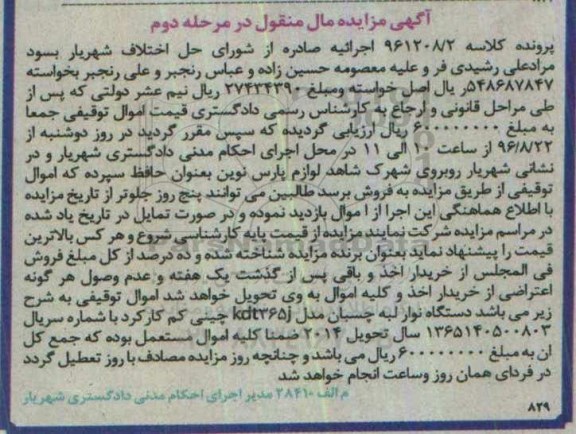 آگهی مزایده مال منقول در مرحله دوم
پرونده کلاسه ۹۶۱۲۰۸/۲ اجرائیه صادره از شورای حل اختلاف شهریار بسود
مرادعلی رشیدی فر و علیه معصومه حسین زاده و عباس رنجبر و علی رنجبر بخواسته
۵۴۸۶۸۷۸۴۷ر یال اصل خواسته ومبلغ ۲۷۴۳۴۳۹۰ ریال نیم عشر دولتی که پس از
طی مراحل قانونی و ارجاع به کارشناس رسمی دادگستری قیمت اموال توقیفی جمعا
به مبلغ ۶۰۰۰۰۰۰۰۰ ریال ارزیابی گردیده که سپس مقرر گردید در روز دوشنبه از
۹۶/۸/۲۲ از ساعت ۱۰ الی ۱۱ در محل اجرای احکام مدنی دادگستری شهریار و در
نشانی شهریار روبروی شهرک شاهد لوازم پارس نوین بعنوان حافظ سپرده که اموال
توقیفی از طریق مزایده به فروش برسد طالبین می توانند پنج روز جلوتر از تاریخ مزایده
با اطلاع هماهنگی این اجرا از ا موال بازدید نموده و در صورت تمایل در تاریخ یاد شده
در مراسم مزایده شرکت نمایند مزایده از قیمت پایه کارشناسی شروع و هر کس بالاترین
قیمت را پیشنهاد نماید بعنوان برنده مزایده شناخته شده و ده درصد از کل مبلغ فروش
فی المجلس از خریدار اخذ و باقی پس از گذشت یک هفته و عدم وصول هر گونه
اعتراضی از خریدار اخذ و کلیه اموال به وی تحویل خواهد شد اموال توقیفی به شرح
زیر می باشد دستگاه نوار لبه چسبان مدل kdt۳۶۵j چینی کم کارکرد با شماره سریال
۱۳۶۵۱۴۰۵۰۰۸۰۳ سال تحویل ۲۰۱۴ ضمنا کلیه اموال مستعمل بوده که جمع کل
ان به مبلغ ۶۰۰۰۰۰۰۰۰ ریال می باشد و چنانچه روز مزایده مصادف با روز تعطیل گردد
در فردای همان روز وساعت انجام خواهد شد
م الف ۲۸۴۱۰ مدیر اجرای احکام مدنی دادگستری شهریار
۸۲۹